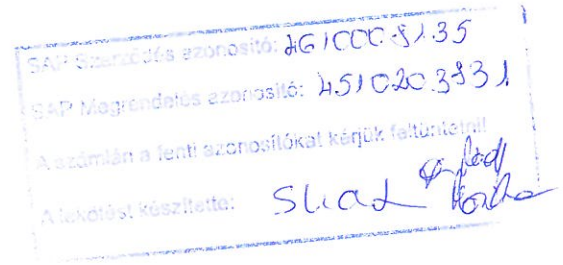 SAP Szerződés azonosító: 461000 8135
SAP Megrendelés azonosító: 451020 3931
A számlán a fenti azonosítókat kérjük feltüntetni!
A lekötést készítette: